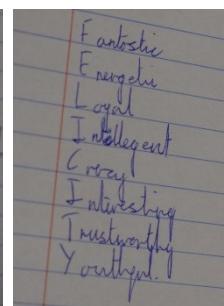 Fantastic
Energetic
Loyal
Intellegent
Crazy
Interesting
Trustworthy
Youthful.